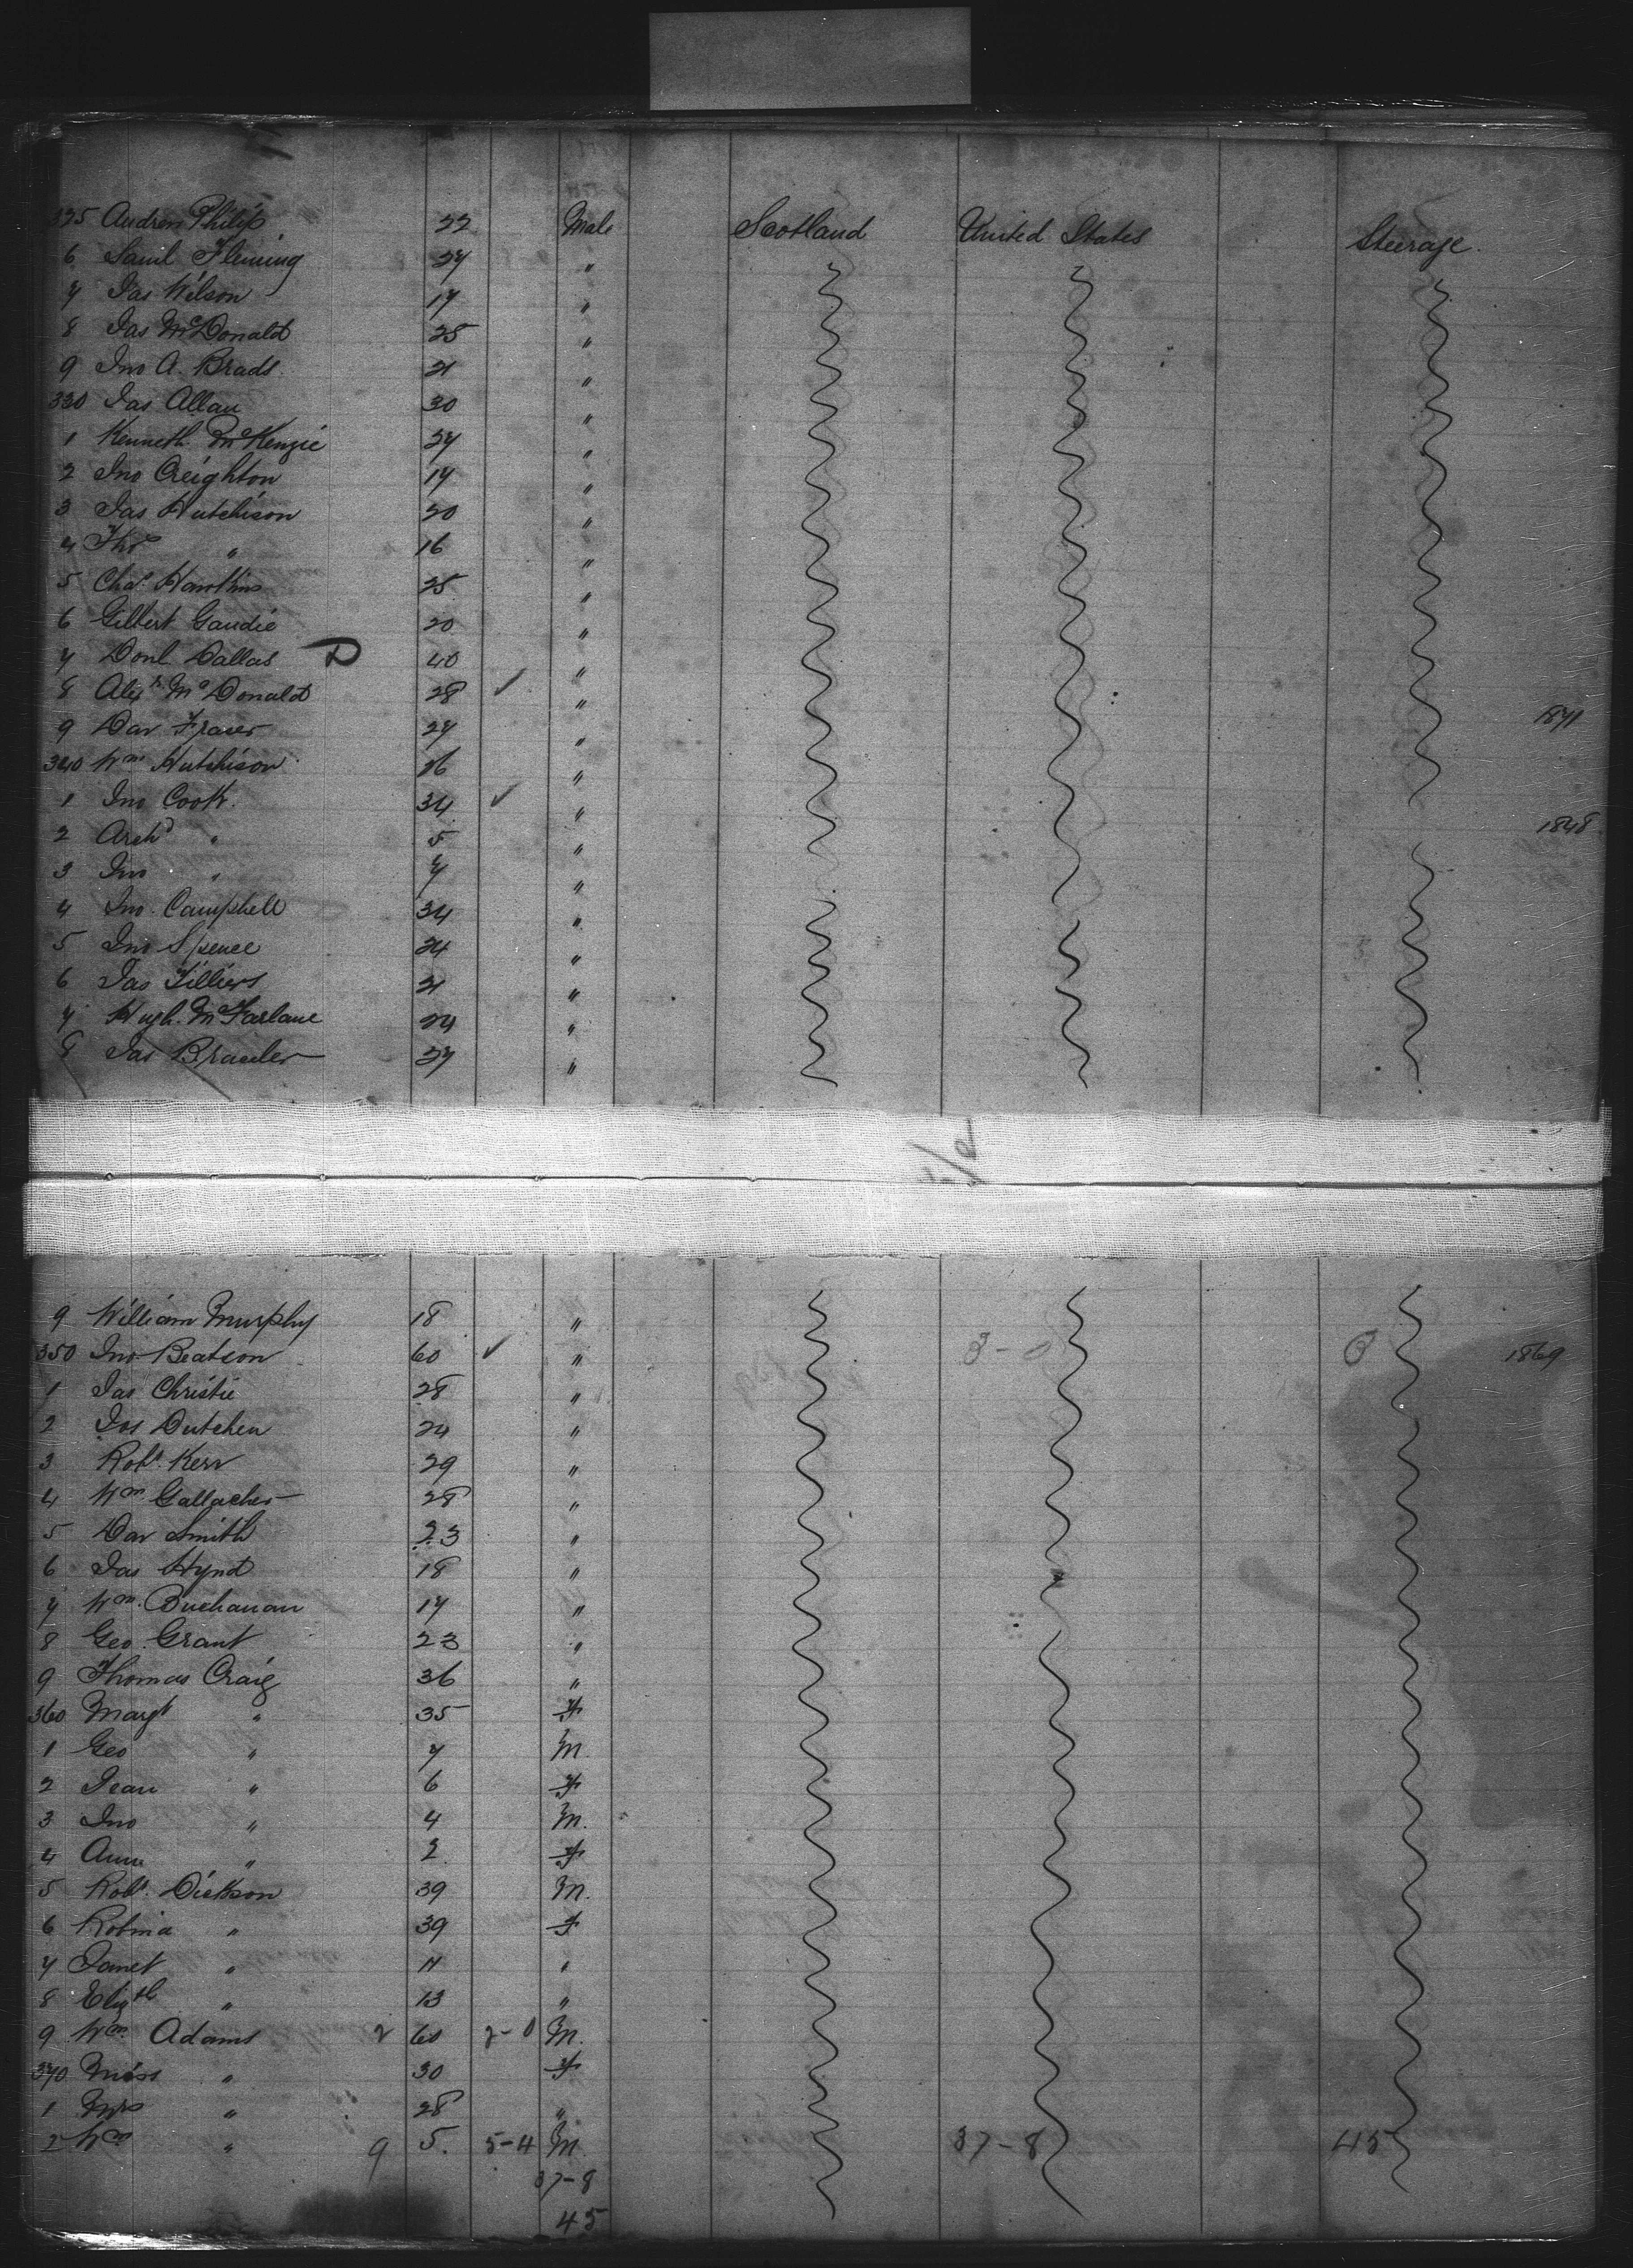 325 Andrew Philip 22 Male Scotland United States Steerage.
6 Saml Fleming 27 "
7 Jas Wilson 17 "
8 Jas McDonald 25 "
9 Jno A. Brads 21 "
330 Jas Allan 30 "
1 Kenneth McKenzie 27 "
2 Jno Creighton 17 "
3 Jas Hutchison 20 "
4 Thos " 16 "
5 Chas. Hawkins 25 "
6 Gilbert Gaudie 20 "
7 Donl Dallas D 40 "
8 Alexr McDonald 28 ✓ "
9 Dav Fraser 27 " 1871
340 Wm Hutchison 26 "
1 Jno Cook. 34 ✓ "
2 Archd " 5 " 1848
3 Jno " 7 "
4 Jno. Campbell 34 "
5 Jno Spence 24 "
6 Jas Tilliers 21 "
7 Hugh. McFarlane 24 "
8 Jas 27 "
9 William Murphy 18 "
350 Jno Beatson 60 ✓ " 3-0 3 1869
1 Jas Christie 28 "
2 Jos Dutchen 24 "
3 Robt. Kerr 29 "
4 Wm Gallacher 28 "
5 Dav Smith 23 "
6 Jas Hynd 18 "
7 Wm. Buchanan 17 "
8 Geo. Grant 23 "
9 Thomas Craig 36 "
360 Margt " 35 F
1 Geo " 7 M.
2 Jean " 6 F
3 Jno " 4 M.
4 Ann " 2 F
5 Robt. Dickson 39 M.
6 Robina " 39 F
7 Janet " 11 "
8 Elizth " 13 "
9 Wm. Adams 2 60 2-0 M.
370 Miss " 30 F
1 Mrs " 28 "
2 Wm " 9 5. 5-4 M. 37-8 45
37-8
45